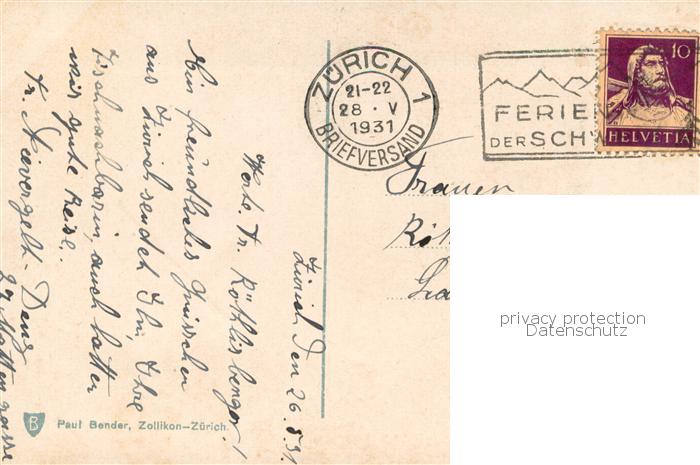 Zürich den 26.5.31.
Werte Fr. Röthlisberger!
Ein freundliches Grüsschen
aus Zürich sendet Ihn, Ihre
Tischnachbarin, auch hatten
wir gute Reise.
Fr. Nievergelt-Denz
ZÜRICH 1
21-22
28 · V
1931
BRIEFVERSAND
FERIEN
DER SCHW
10
HELVETIA
Frauen
Röt
privacy protection
Datenschutz
B
Paul Bender, Zollikon-Zürich.